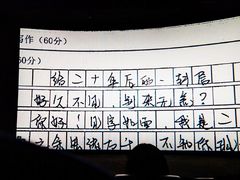 写作（60分）
60分）
给二十年后的一封信
好久不见，别来无恙？
你好！见字如面，我是二